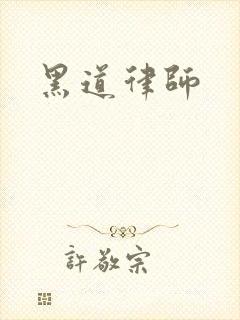 黑道律師
許敬宗